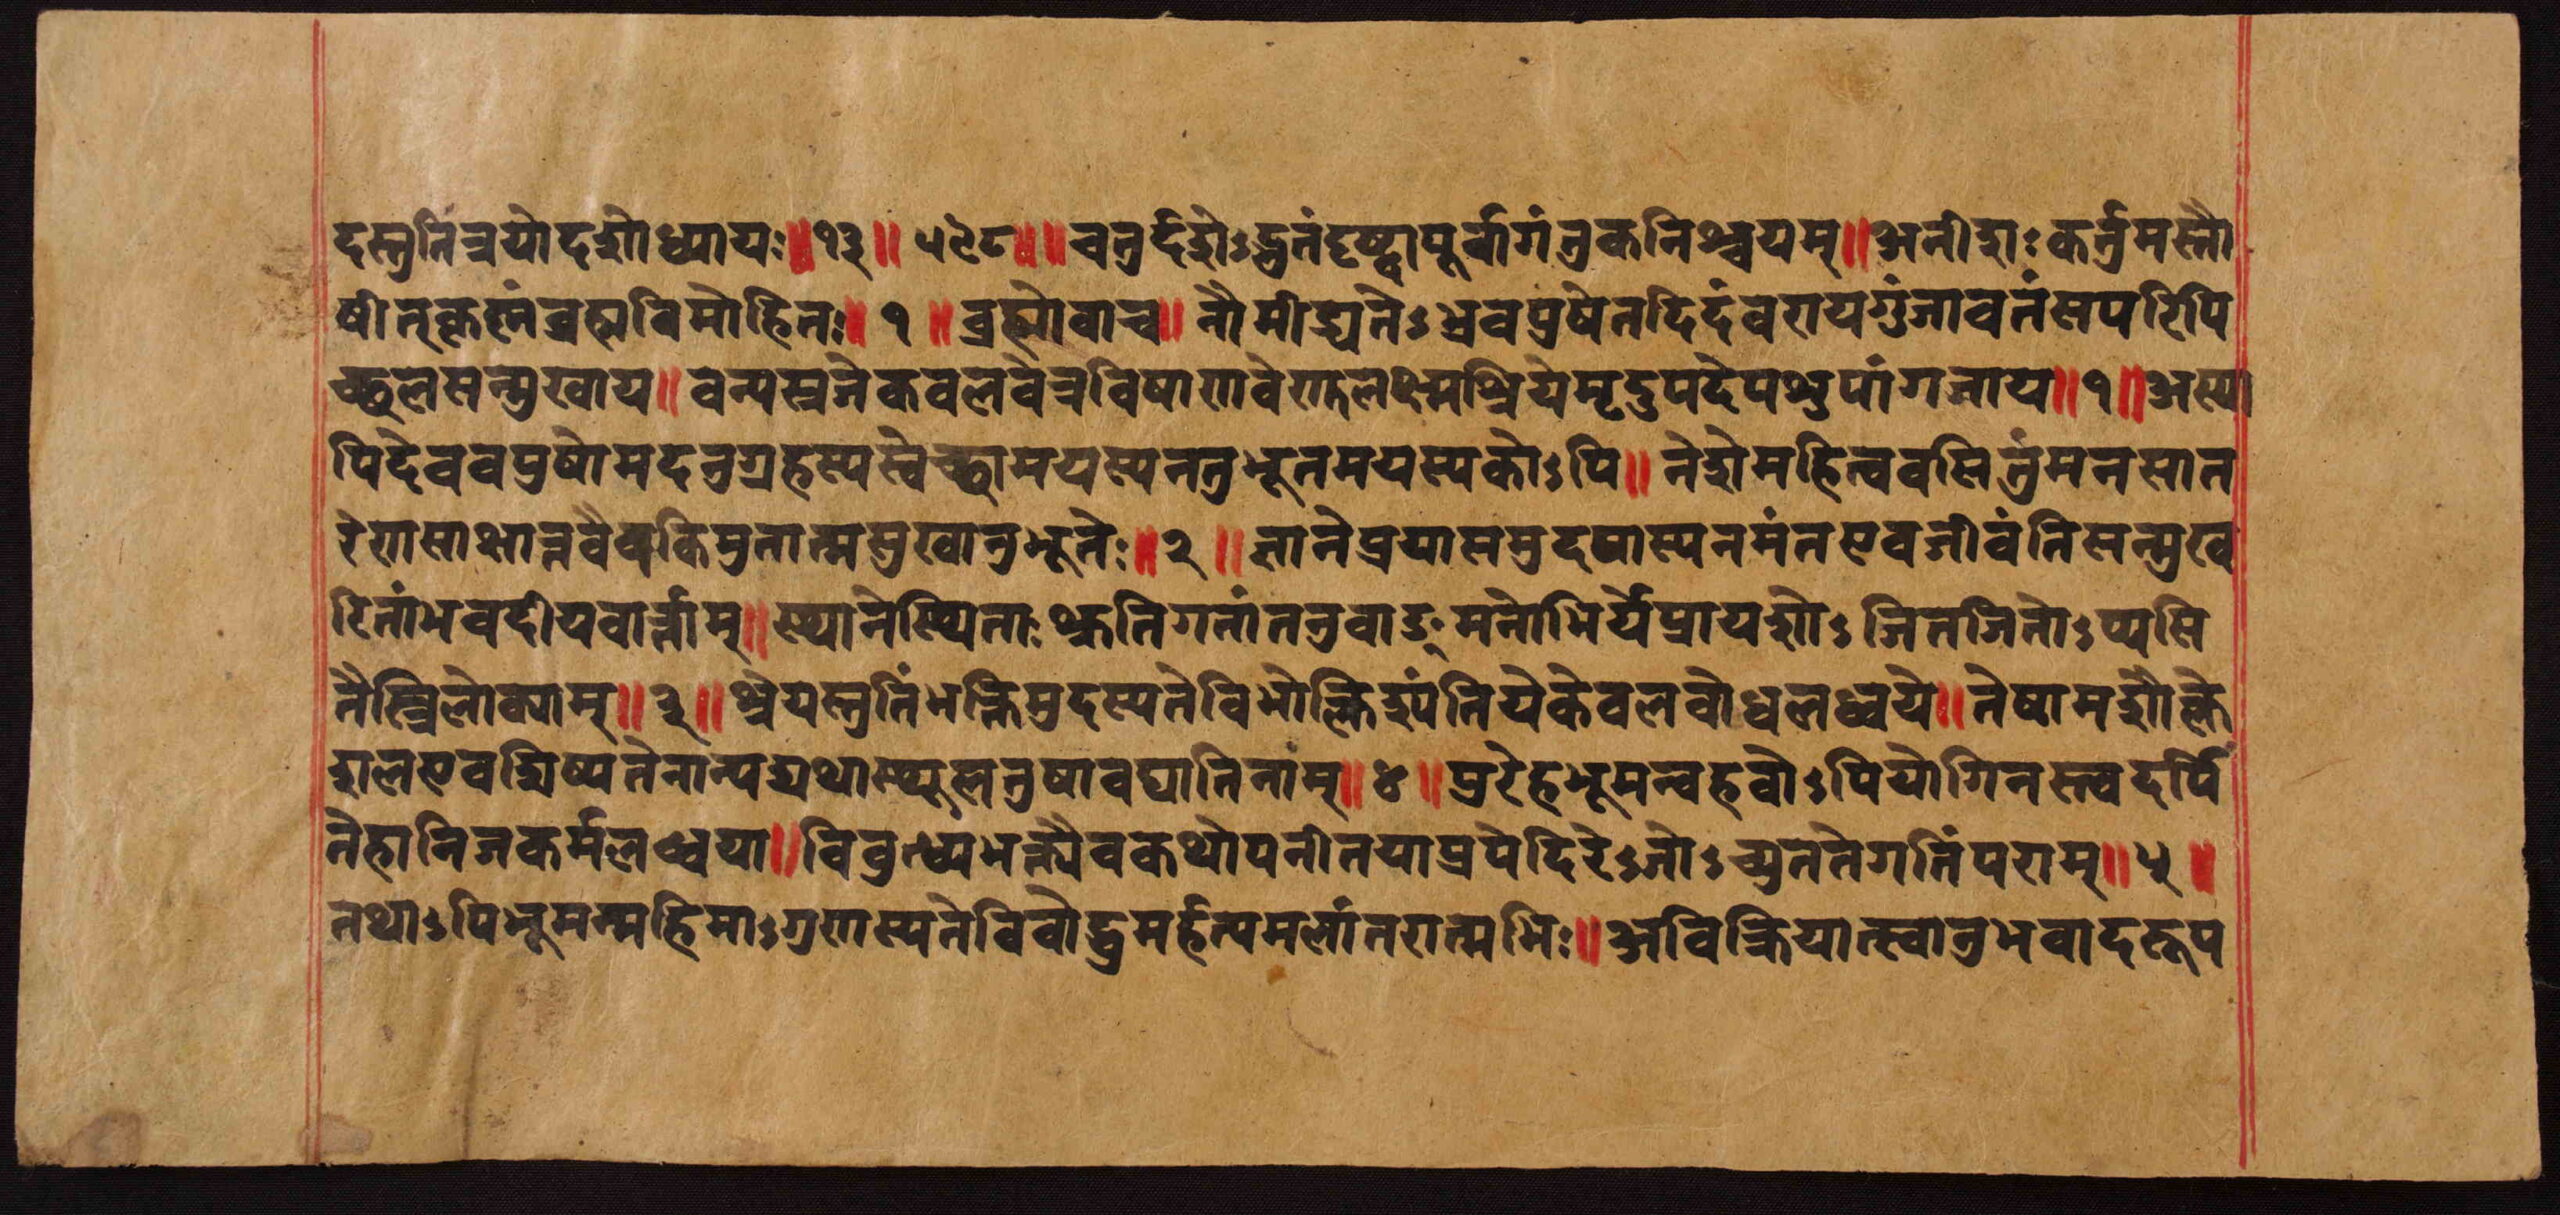 दस्तुतिंत्रयोदशोध्यायः॥१३॥५९८॥॥चतुर्दशेऽद्भुतंदृष्ट्वापूर्वागंतुकनिश्चयम्॥अनीशः कर्तुमस्तौ
षीत्कृष्णंब्रह्मविमोहितः॥१॥ब्रह्मोवाच॥नौमीड्यतेऽभ्रवपुषेतडिदंबरायगुंजावतंसपरिपि
च्छलसन्मुखाय॥वन्यस्रजेकवलवेत्रविषाणवेणुलक्ष्मश्रियेमृदुपदेपशुपांगजाय॥१॥अस्या
पिदेववपुषोमदनुग्रहस्यस्वेच्छामयस्यनतुभूतमयस्यकोऽपि॥नेशेमहित्ववसितुंमनसांत
रेणसाक्षात्तवैवकिमुतात्मसुखानुभूतेः॥२॥ज्ञानेप्रयासमुदपास्यनमंतएवजीवंतिसन्मुख
रितांभवदीयवार्त्ताम्॥स्थानेस्थिताःश्रुतिगतांतनुवाङ्मनोभिर्येप्रायशोऽजितजितोऽप्यसि
तैस्त्रिलोक्याम्॥३॥श्रेयस्स्रुतिंभक्तिमुदस्यतेविभोक्लिश्यंतियेकेवलबोधलब्धये॥तेषामशौक्ले
शलएवशिष्यतेनान्यद्यथास्थूलतुषावघातिनाम्॥४॥पुरेहभूमन्बहवोऽपियोगिनस्त्वदर्पि
तेहानिजकर्मलब्धया॥विबुध्यभक्त्यैवकथोपनीतयाप्रपेदिरेऽंजोऽच्युततेगतिंपराम्॥५॥
तथाऽपिभूमन्महिमाऽगुणस्यतेविबोद्धुमर्हत्यमलांतरात्मभिः॥अविक्रियात्स्वानुभवादरूप